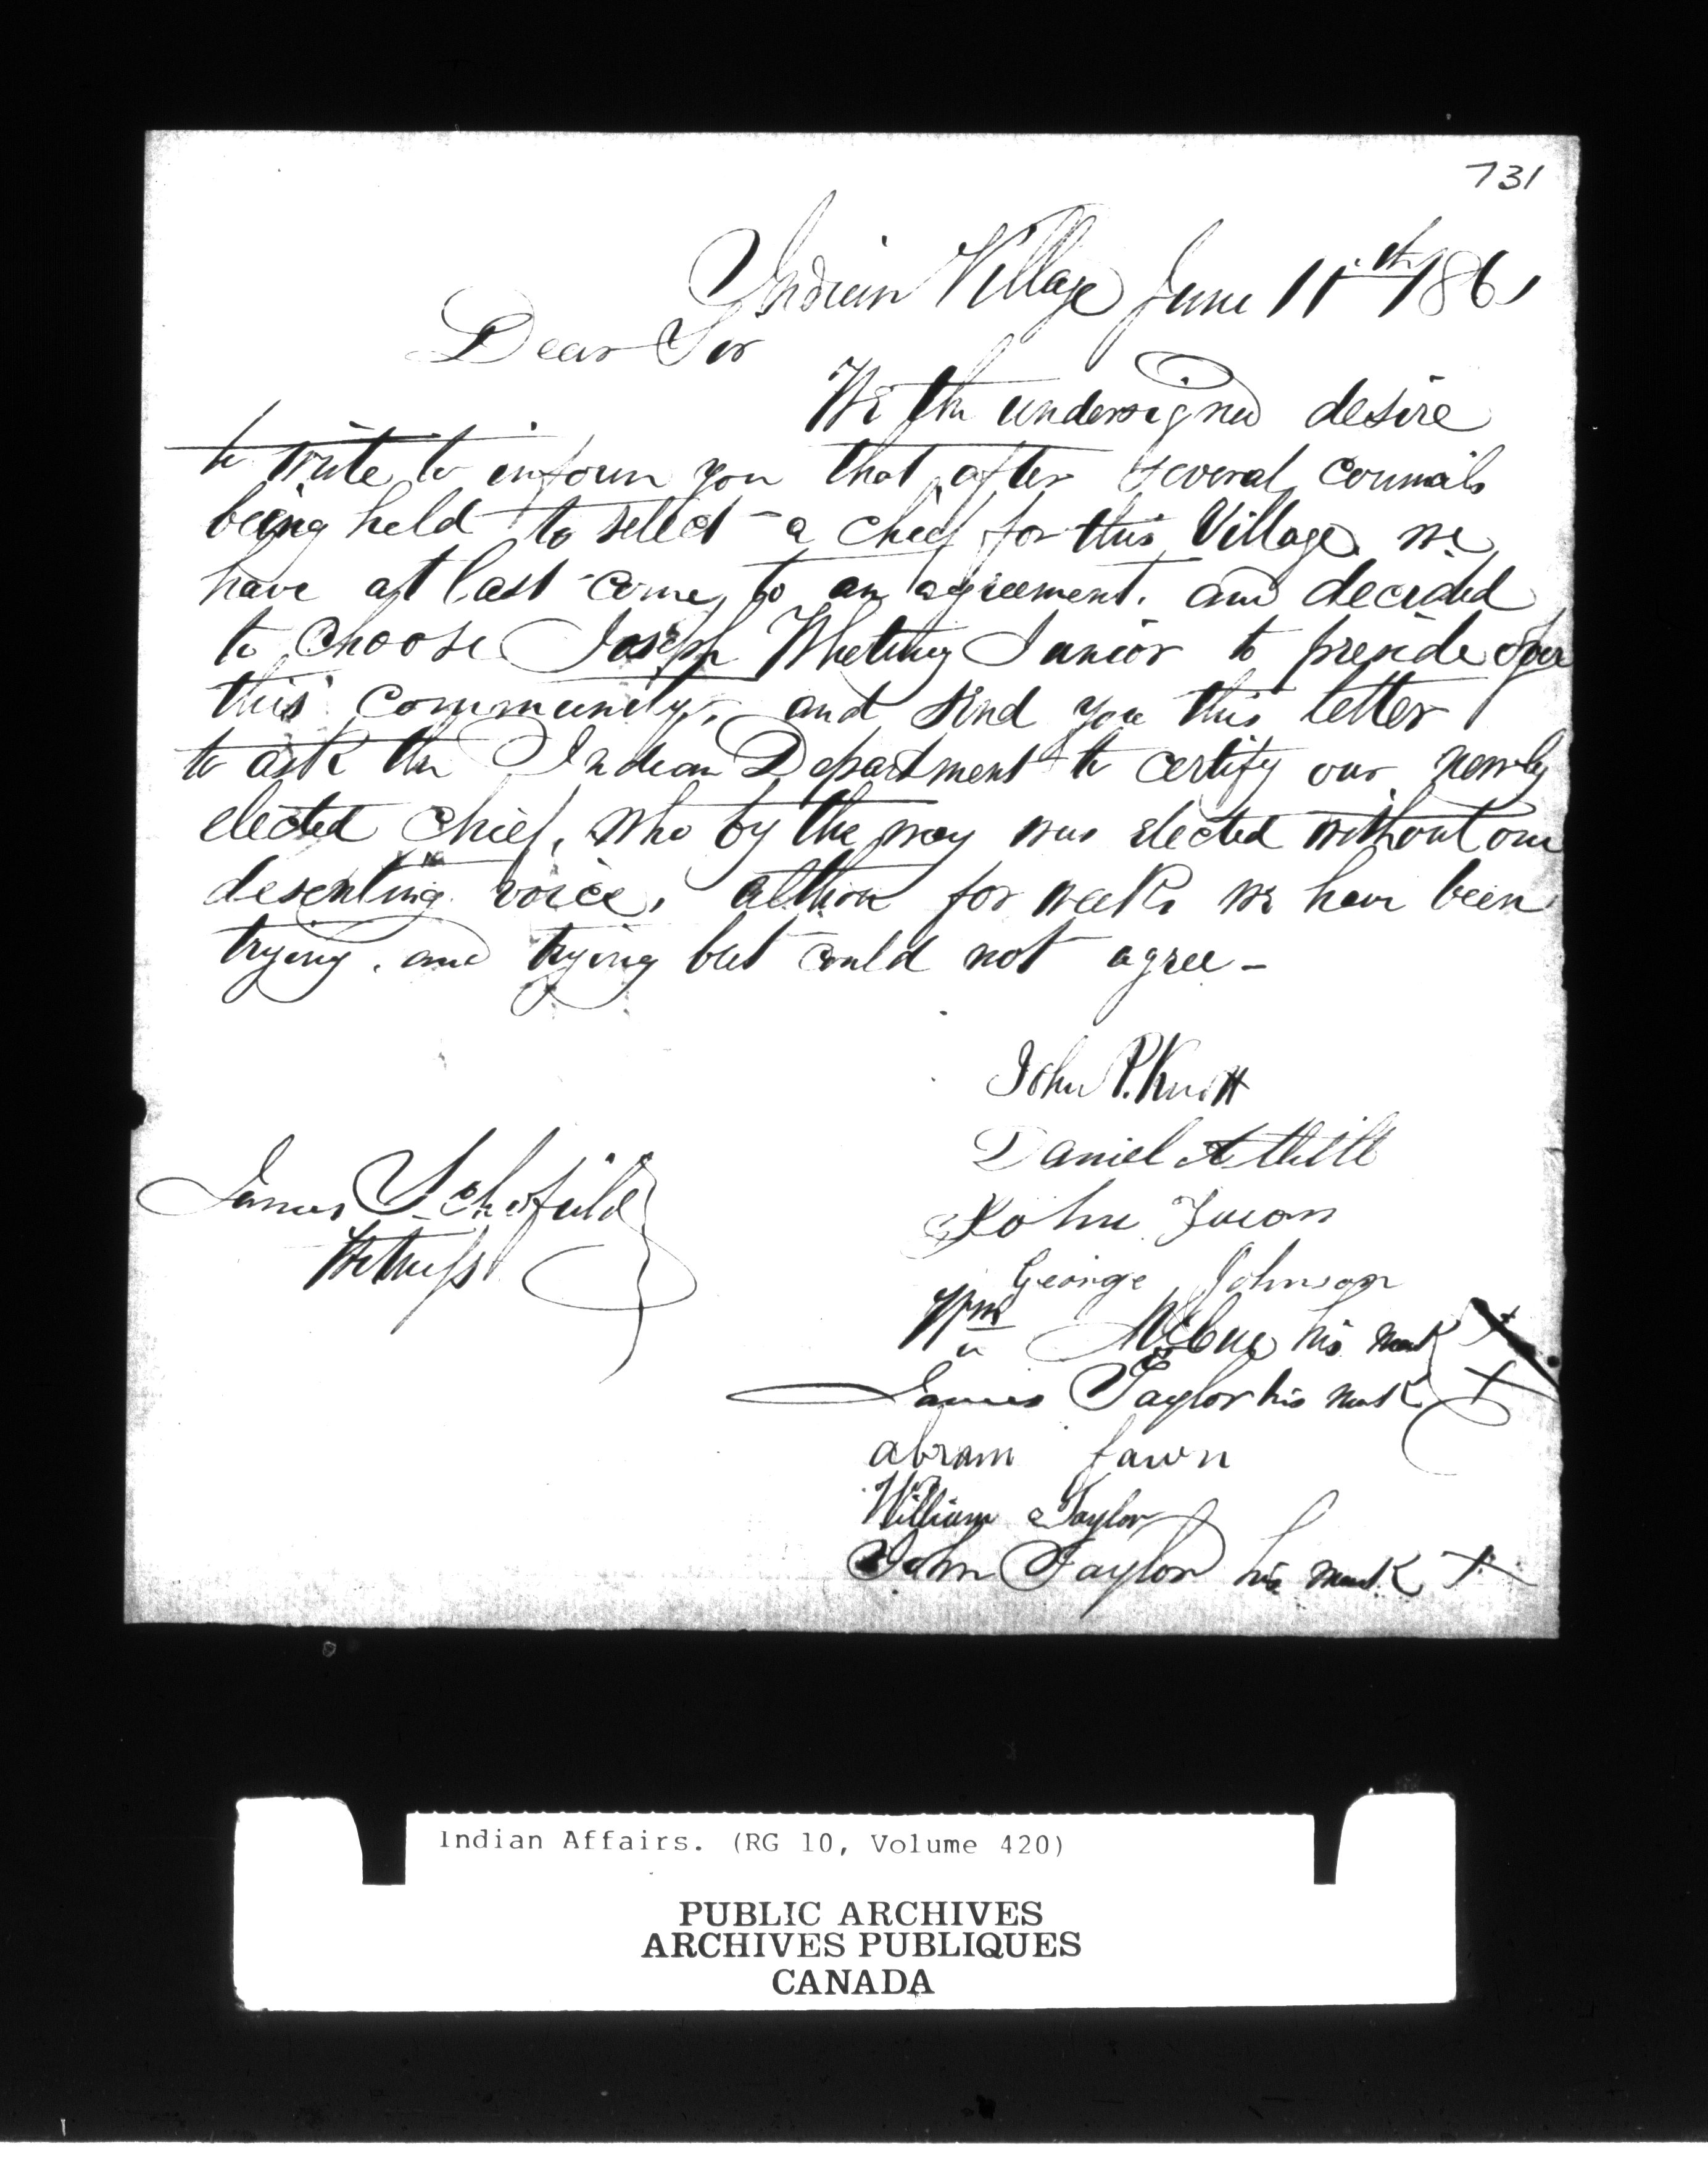 731
Indian Village June 11th 1861
Dear Sir
We the undersigned desire
to write to inform you that after several councils
being held to sellect a chief for this Village we
have at last come to an agreement. and decided
to choose Joseph Whetung Junior to preside over
this community, and send you this letter
to ask the Indian Department to certify our newly
elected chief, who by the way was elected without one
desenting voice, althou for weeks we have been
trying, and trying but could not agree -
John P. Knott
Daniel
John
George Johnson
James Schofield
Witness
Wm his mark X
James Taylor his mark X
abram fawn
William Taylor
John Taylor his mark X
Indian Affairs. (RG 10, Volume 420)
PUBLIC ARCHIVES
ARCHIVES PUBLIQUES
CANADA